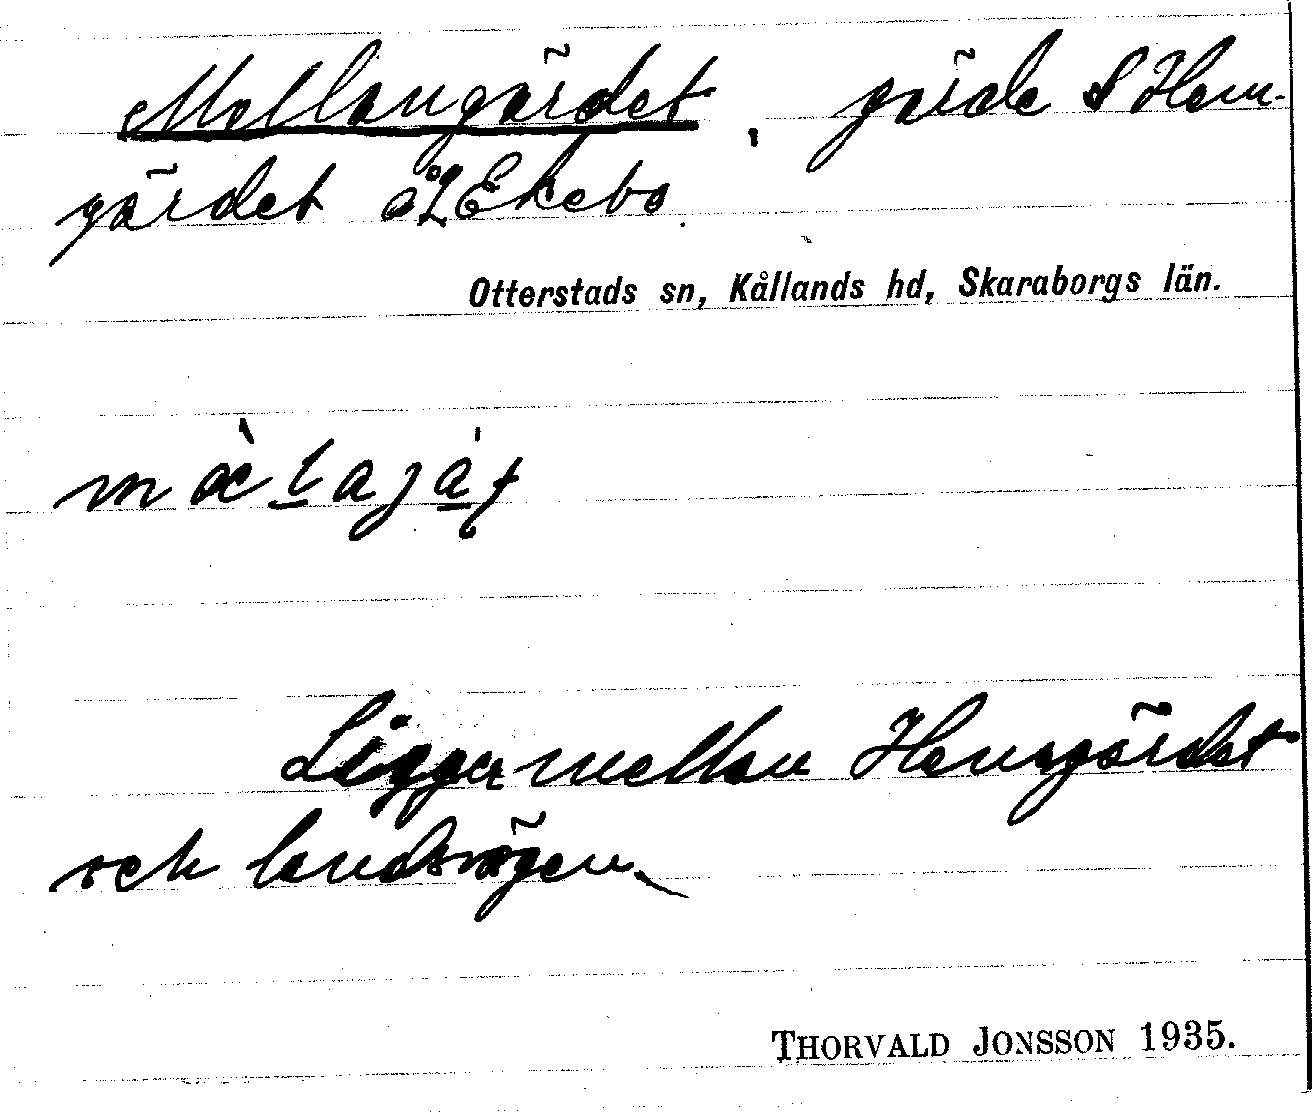 Mellangärdet, gärde S Hem-
gärdet å L Ekebo.
Otterstads sn, Kållands hd, Skaraborgs län.
Ligger mellan Hemgärdet
och landsvägen.
THORVALD JONSSON 1935.